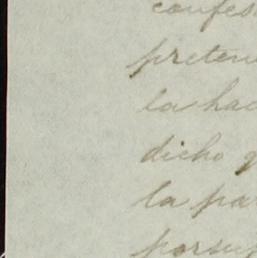 confes
preten
la hac
dicho q
la par
porsup